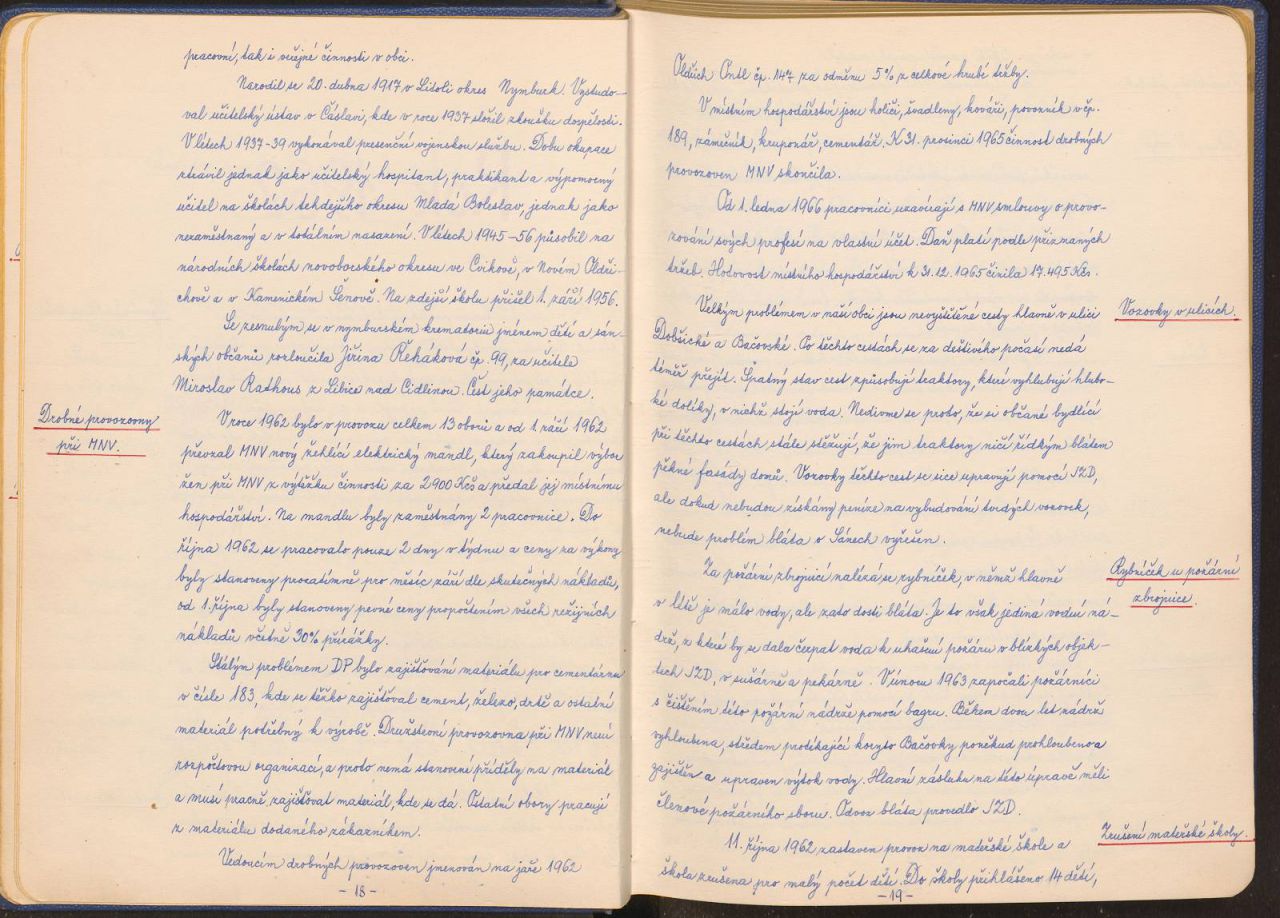 pracovní, tak i veřejné činnosti v obci.
Narodil se 20. dubna 1917 v Litoli okres Nymburk. Vystudo-
val učitelský ústav v Čáslavi, kde v roce 1937 složil zkoušku dospělosti.
V létech 1937-39 vykonával presenční vojenskou službu. Dobu okupace
ztrávil jednak jako učitelský hospitant, praktikant a výpomocný
učitel na školách tehdejšího okresu Mladá Boleslav, jednak jako
nezaměstnaný a v totálním nasazení. V létech 1945-56 působil na
národních školách novoborského okresu ve Cvikově, v Novém Oldři-
chově a v Kamenickém Šenově. Na zdejší školu přišel 1. září 1956.
Se zesnulým se v nymburském krematoriu jménem dětí a sán-
ských občanů rozloučila Jiřina Řeháková čp. 99, za učitele
Miroslav Rathous z Libice nad Cidlinou. Čest jeho památce.
Drobné provozovny
při MNV.
V roce 1962 bylo v provozu celkem 13 oborů a od 1. září 1962
převzal MNV nový žehlící elektrický mandl, který zakoupil výbor
žen při MNV z výtěžku činnosti za 2900 Kčs a předal jej místnímu
hospodářství. Na mandlu byly zaměstnány 2 pracovnice. Do
října 1962 se pracovalo pouze 2 dny v týdnu a ceny za výkony
byly stanoveny prozatímně pro měsíc září dle skutečných nákladů,
od 1. října byly stanoveny pevné ceny propočtením všech režijních
nákladů včetně 30% přirážky.
Stálým problémem DP bylo zajišťování materiálu pro cementárnu
v čísle 183, kde se těžko zajišťoval cement, železo, drtě a ostatní
materiál potřebný k výrobě. Družstevní provozovna při MNV není
rozpočtovou organizací, a proto nemá stanovení příděly na materiál
a musí pracně zajišťovat materiál, kde se dá. Ostatní obory pracují
z materiálu dodaného zákazníkem.
Vedoucím drobných provozoven jmenován na jaře 1962
- 18 -
Oldřich Ontl čp. 147 za odměnu 5% z celkové hrubé tržby.
V místním hospodářství jsou holiči, švadleny, kováři, povozník v čp.
189, zámečník, kruponář, cementář. K 31. prosinci 1965 činnost drobných
provozoven MNV skončila.
Od 1. ledna 1966 pracovníci uzavírají s MNV smlouvy o provo-
zování svých profesí na vlastní účet. Daň platí podle přiznaných
tržeb. Hotovost místního hospodářství k 31.12.1965 činila 17.495 Kčs.
Vozovky v ulicích.
Velkým problémem v naší obci jsou nevyštětěné cesty hlavně v ulici
Dobšické a Bačovské. Po těchto cestách se za deštivého počasí nedá
téměř přejít. Špatný stav cest způsobují traktory, které vyhlubují hlubo-
ké dolíky, v nichž stojí voda. Nedivme se proto, že si občané bydlící
při těchto cestách stále stěžují, že jim traktory ničí řídkým blátem
pěkné fasády domů. Vozovky těchto cest se sice upravují pomocí JZD,
ale dokud nebudou získány peníze na vybudování tvrdých vozovek,
nebude problém bláta v Sánech vyřešen.
Rybníček u požární
zbrojnice.
Za požární zbrojnicí nalézá se rybníček, v němž hlavně
v létě je málo vody, ale zato dosti bláta. Je to však jediná vodní ná-
drž, z které by se dala čerpat voda k uhašení požáru v blízkých objek-
tech JZD, v sušárně a pekárně. V únoru 1963 započali požárníci
s čištěním této požární nádrže pomocí bagru. Během dvou let nádrž
vyhloubena, středem protékající koryto Bačovky poněkud prohloubeno a
zajištěn a upraven výtok vody. Hlavní zásluhu na této úpravě měli
členové požárního sboru. Odvoz bláta provedlo JZD.
Zrušení mateřské školy.
11. října 1962 zastaven provoz na mateřské škole a
škola zrušena pro malý počet dětí. Do školy přihlášeno 14 dětí,
- 19 -